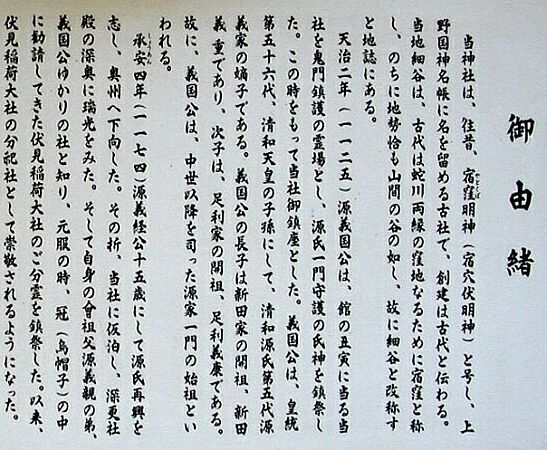 御由緒
当神社は、往昔、宿窪明神（宿穴伏明神）と号し、上
野国神名帳に名を留める古社で、創建は古代と伝わる。
当地細谷は、古代は蛇川両縁の窪地なるために宿窪と称
し、のちに地勢恰も山間の谷の如し、故に細谷と改称す
と地誌にある。
天治二年（一一二五）源義国公は、館の丑寅に当る当
社を鬼門鎮護の霊場とし、源氏一門守護の氏神を鎮祭し
た。この時をもって当社御鎮座とした。義国公は、皇統
第五十六代、清和天皇の子孫にして、清和源氏第五代源
義家の嫡子である。義国公の長子は新田家の開祖、新田
義重であり、次子は、足利家の開祖、足利義康である。
故に、義国公は、中世以降を司った源家一門の始祖とい
われる。
承安四年（一一七四）源義経公十五歳にして源氏再興を
志し、奥州へ下向した。その折、当社に仮泊し、深更社
殿の深奥に瑞光をみた。そして自身の曾祖父源義親の弟、
義国公ゆかりの社と知り、元服の時、冠（烏帽子）の中
に勧請してきた伏見稲荷大社のご分霊を鎮祭した。以来、
伏見稲荷大社の分祀社として崇敬されるようになった。